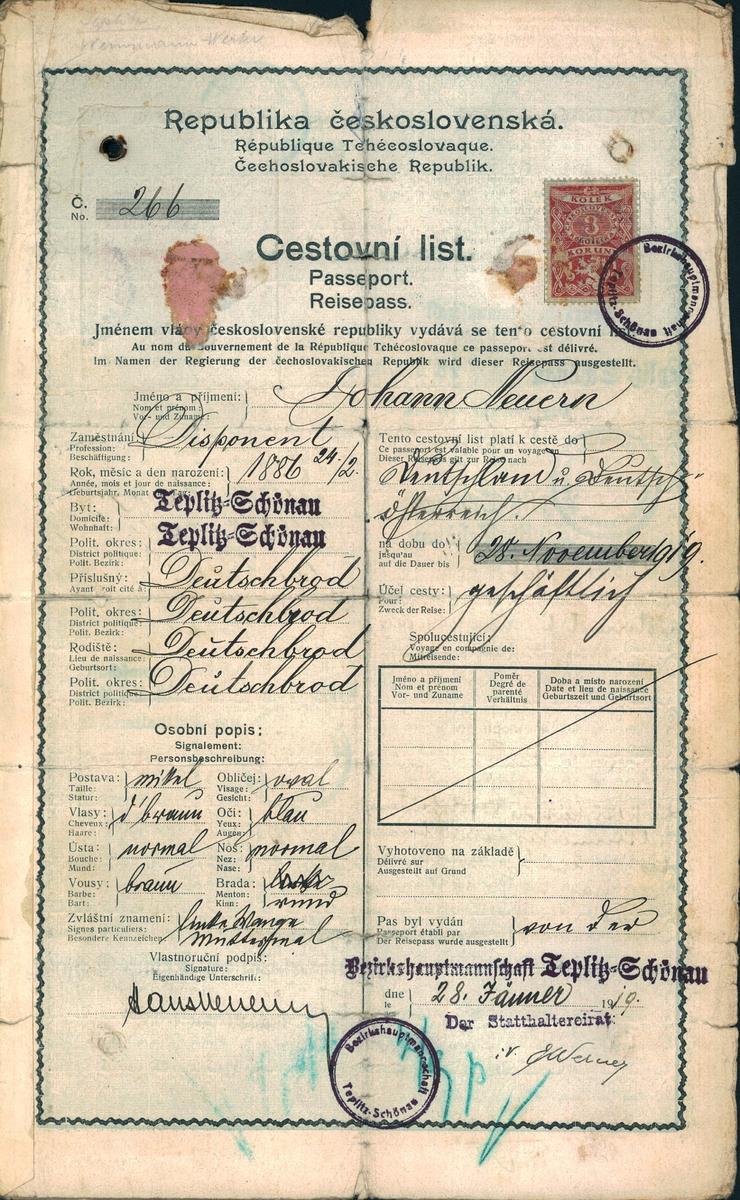 Republika československá.
République Tchécoslovaque.
Čechoslovakische Republik.
Č.
No. 266
KOLEK
3
KORUN
Bezirkshauptmannschaft Teplitz-Schönau
Cestovní list.
Passeport.
Reisepass.
Jménem vlády československé republiky vydává se tento cestovní
Au nom du Gouvernement de la République Tchécoslovaque ce passeport est délivré.
Im Namen der Regierung der čechoslovakischen Republik wird dieser Reisepass ausgestellt.
Jméno a příjmení:
Nom et prénom:
Vor- und Zuname:
Johann Neuern
Zaměstnání
Profession:
Beschäftigung:
Disponent
Rok, měsíc a den narození:
Année, mois et jour de naissance:
Geburtsjahr, Monat
1886 24/2.
Byt:
Domicile:
Wohnhaft:
Teplitz-Schönau
Polit. okres:
District politique:
Polit. Bezirk:
Teplitz-Schönau
Příslušný:
Ayant droit cité à:
Deutschbrod
Polit. okres:
District politique:
Polit. Bezirk:
Deutschbrod
Rodiště:
Lieu de naissance:
Geburtsort:
Deutschbrod
Polit. okres:
District politique:
Polit. Bezirk:
Deutschbrod
Osobní popis:
Signalement:
Personsbeschreibung:
Postava:
Taille:
Statur:
mittel
Obličej:
Visage:
Gesicht:
oval
Vlasy:
Cheveux:
Haare:
d'braun
Oči:
Yeux:
Augen:
blau
Ústa:
Bouche:
Mund:
normal
Nos:
Nez:
Nase:
normal
Vousy:
Barbe:
Bart:
braun
Brada:
Menton:
Kinn:
rund
Zvláštní znamení:
Signes particuliers:
Besondere Kennzeichen:
linke Wange
Muttermal
Vlastnoruční podpis:
Signature:
Eigenhändige Unterschrift:
Hans Neuern
Tento cestovní list platí k cestě do
Ce passeport est valable pour un voyage en
Dieser Reisepass gilt zur Reise nach
Deutschland u. Deutsch-
österreich.
na dobu do
jusqu'au
auf die Dauer bis
28. November 1919.
Účel cesty:
Pour:
Zweck der Reise:
geschäftlich
Spolucestující:
Voyage en compagnie de:
Mitreisende:
Jméno a příjmení
Nom et prénom
Vor- und Zuname
Poměr
Degré de
parenté
Verhältnis
Doba a místo narození
Date et lieu de naissance
Geburtszeit und Geburtsort
Vyhotoveno na základě
Délivré sur
Ausgestellt auf Grund
Pas byl vydán
Passeport établi par
Der Reisepass wurde ausgestellt
von der
Bezirkshauptmannschaft Teplitz-Schönau
dne
le
28. Jänner 1919.
Der Statthaltereirat:
Bezirkshauptmannschaft Teplitz-Schönau